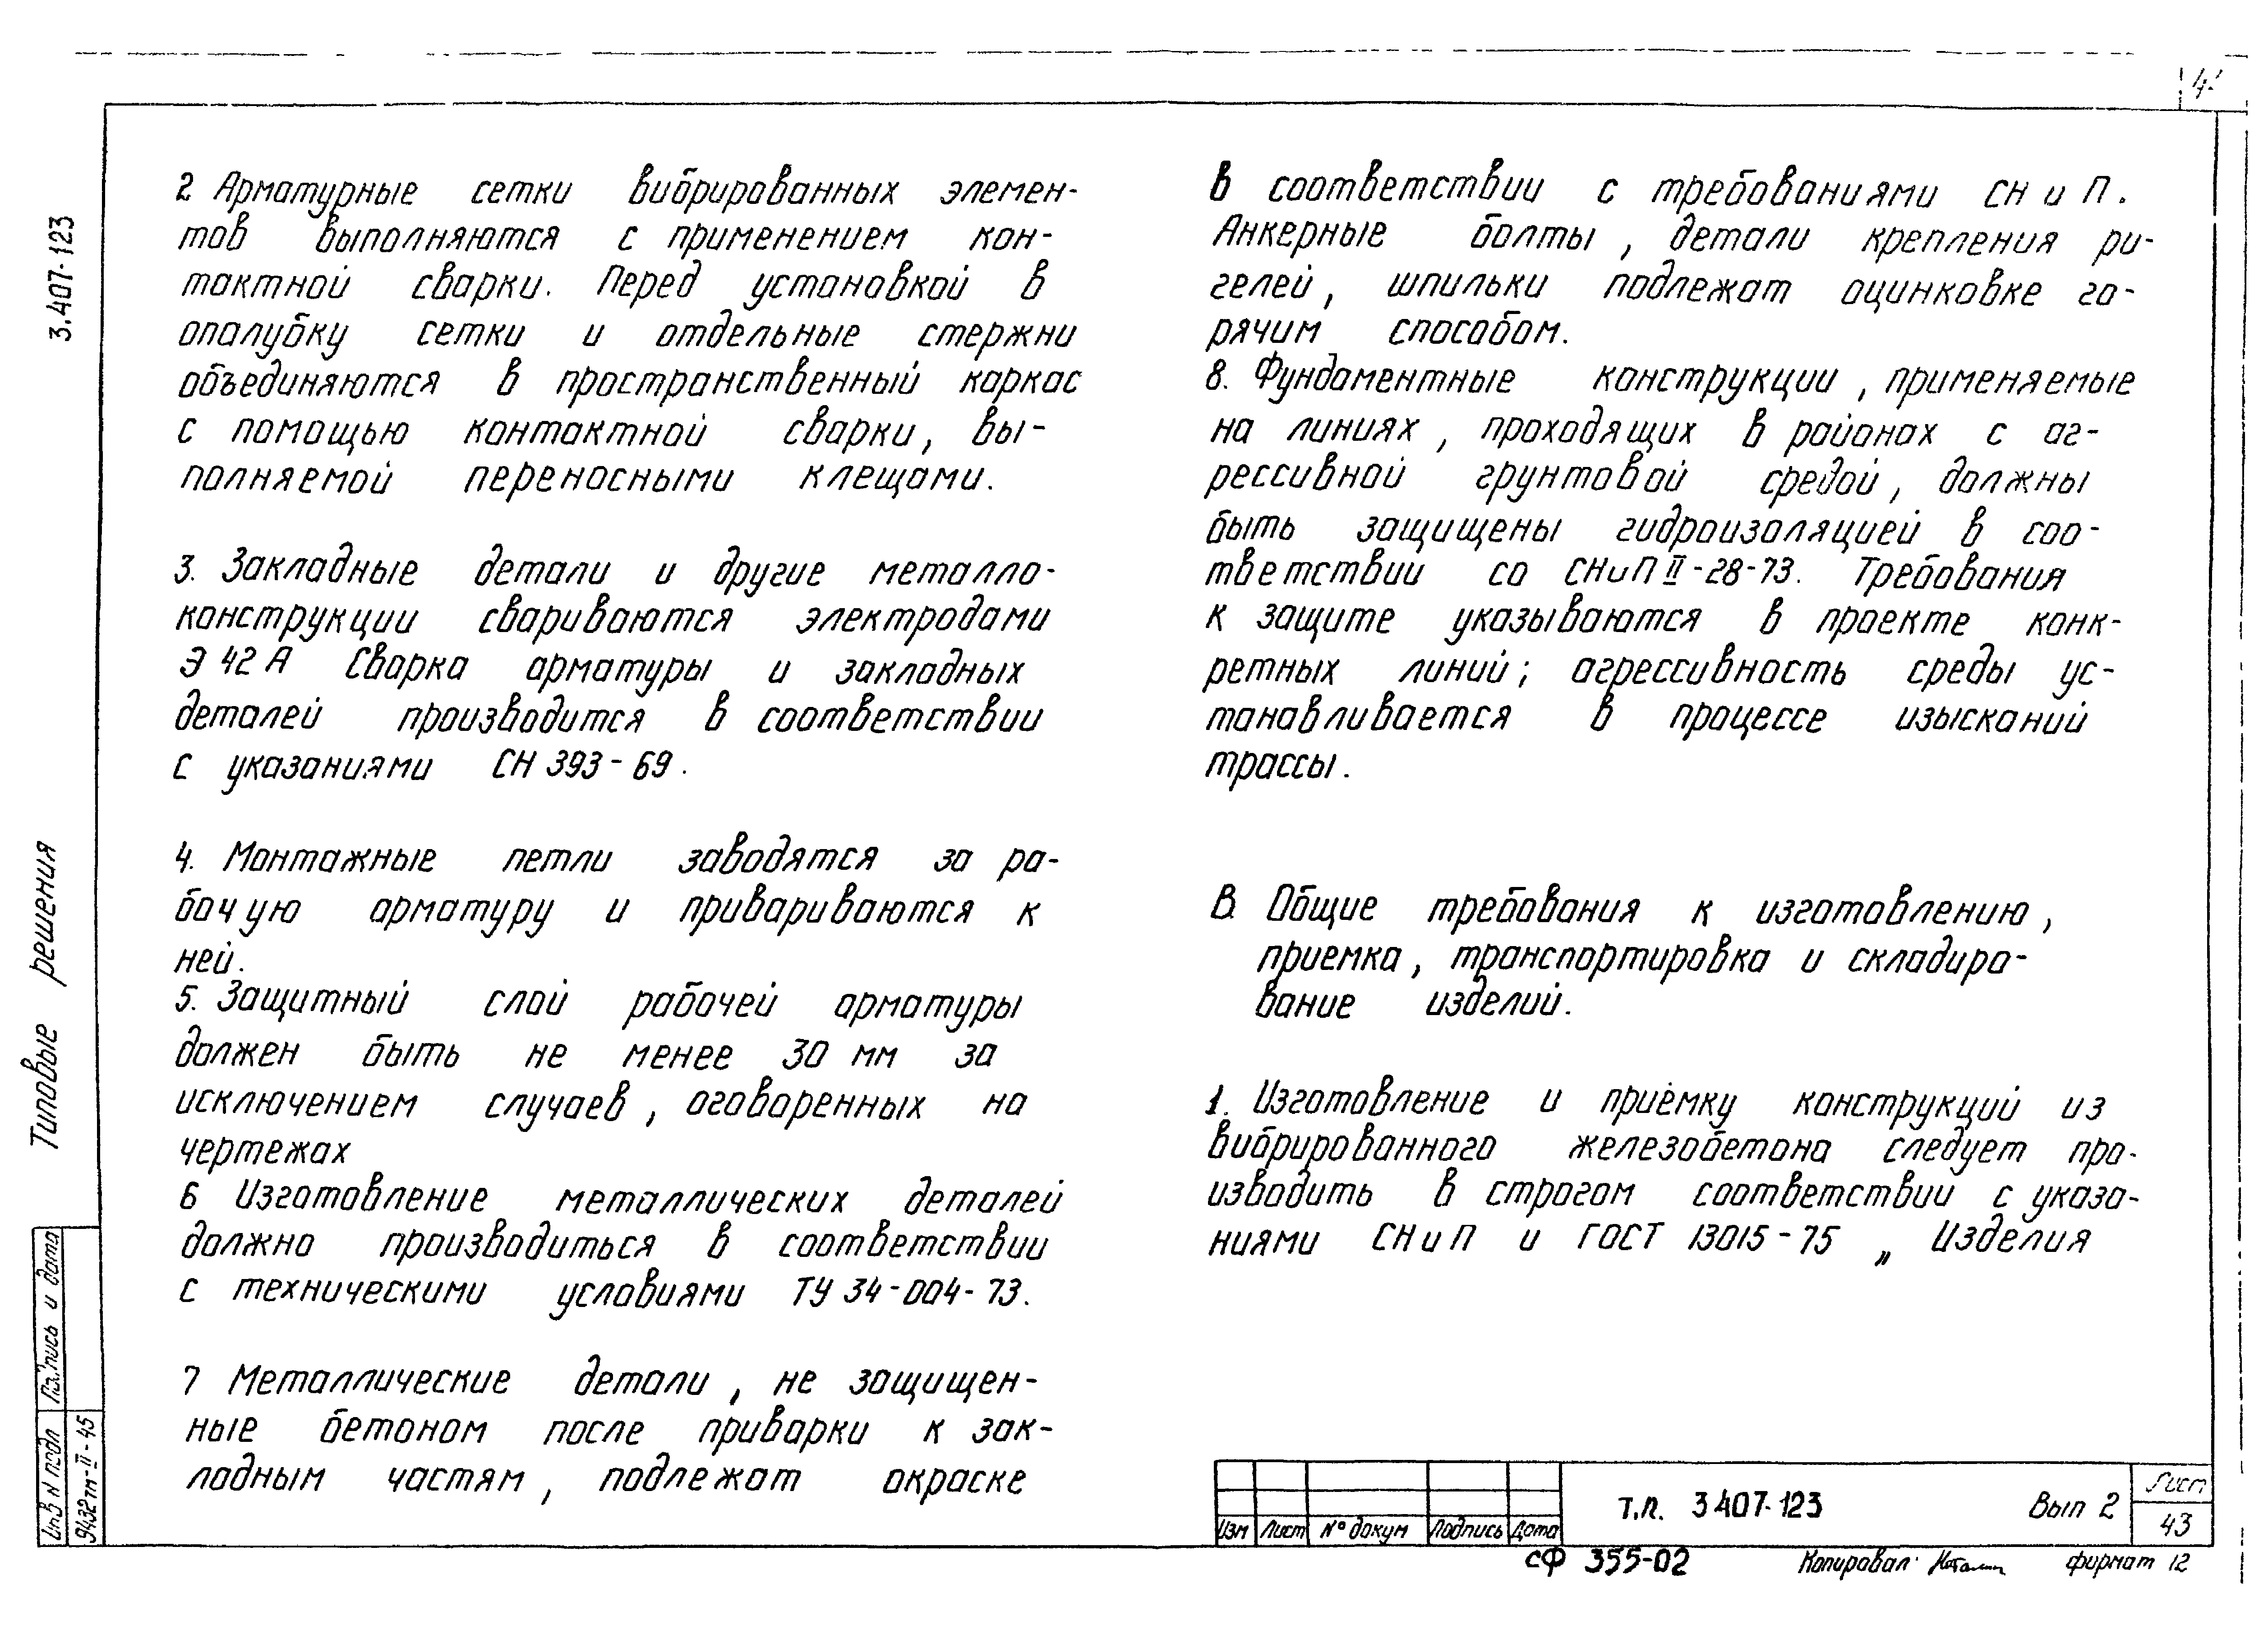 3.407-123
Типовые решения
2 Арматурные сетки вибрированных элемен-
тов выполняются с применением кон-
тактной сварки. Перед установкой в
опалубку сетки и отдельные стержни
объединяются в пространственный каркас
с помощью контактной сварки, вы-
полняемой переносными клещами.
3. Закладные детали и другие металло-
конструкции свариваются электродами
Э 42 А Сварка арматуры и закладных
деталей производится в соответствии
с указаниями СН 393-69.
4. Монтажные петли заводятся за ра-
бочую арматуру и привариваются к
ней.
5. Защитный слой рабочей арматуры
должен быть не менее 30 мм за
исключением случаев, оговоренных на
чертежах
6 Изготовление металлических деталей
должно производиться в соответствии
с техническими условиями ТУ 34-004-73.
7 Металлические детали, не защищен-
ные бетоном после приварки к зак-
ладным частям, подлежат окраске
в соответствии с требованиями СН и П.
Анкерные болты, детали крепления ри-
гелей, шпильки подлежат оцинковке го-
рячим способом.
8. Фундаментные конструкции, применяемые
на линиях, проходящих в районах с аг-
рессивной грунтовой средой, должны
быть защищены гидроизоляцией в соо-
тветствии со СНиП II-28-73. Требования
к защите указываются в проекте конк-
ретных линий; агрессивность среды ус-
танавливается в процессе изысканий
трассы.
В. Общие требования к изготовлению,
приемка, транспортировка и складиро-
вание изделий.
1. Изготовление и приёмку конструкций из
вибрированного железобетона следует про-
изводить в строгом соответствии с указа-
ниями СНиП и ГОСТ 13015-75 „ Изделия
Инв N подл Подпись и дата
9432тм-II-45
Изм Лист N° докум Подпись Дата
т.п. 3 407-123 Вып 2
Лист
43
сф 355-02 Копировал: формат 12